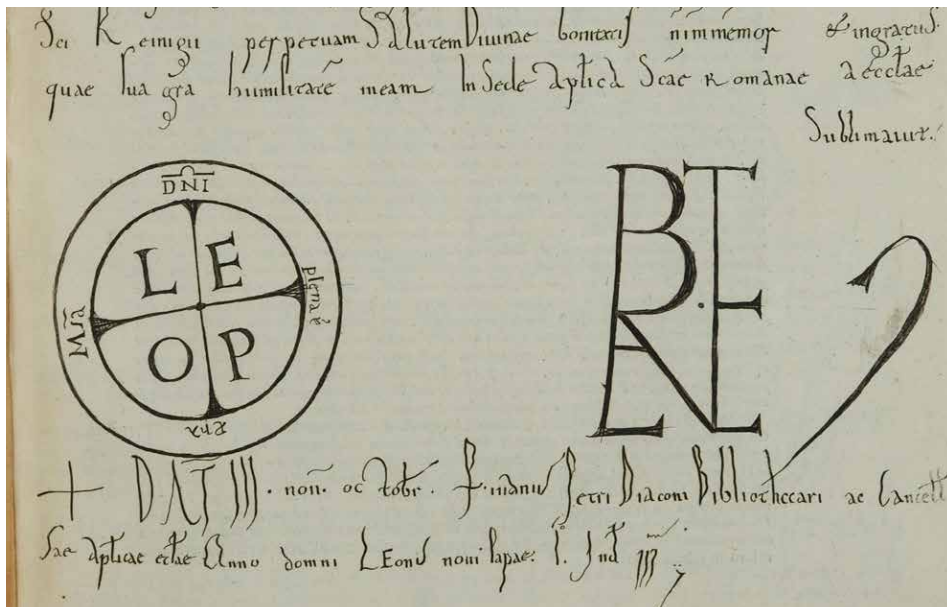 Sci Remigii perpetuam Salutem Divinae bonitatis nimmemor & ingratus
quae sua gra humilitatē meam In Sede Aplica Scae Romanae aecclae
Sublimavit.
DNI
Mia
plena ē
L E
O P
+ DAT III. non. octobr. P. manus Petri Diaconi Bibliothecarii ac Cancell
Sae aplicae eclae Anno domni LEonis noni Papae. I. Ind III